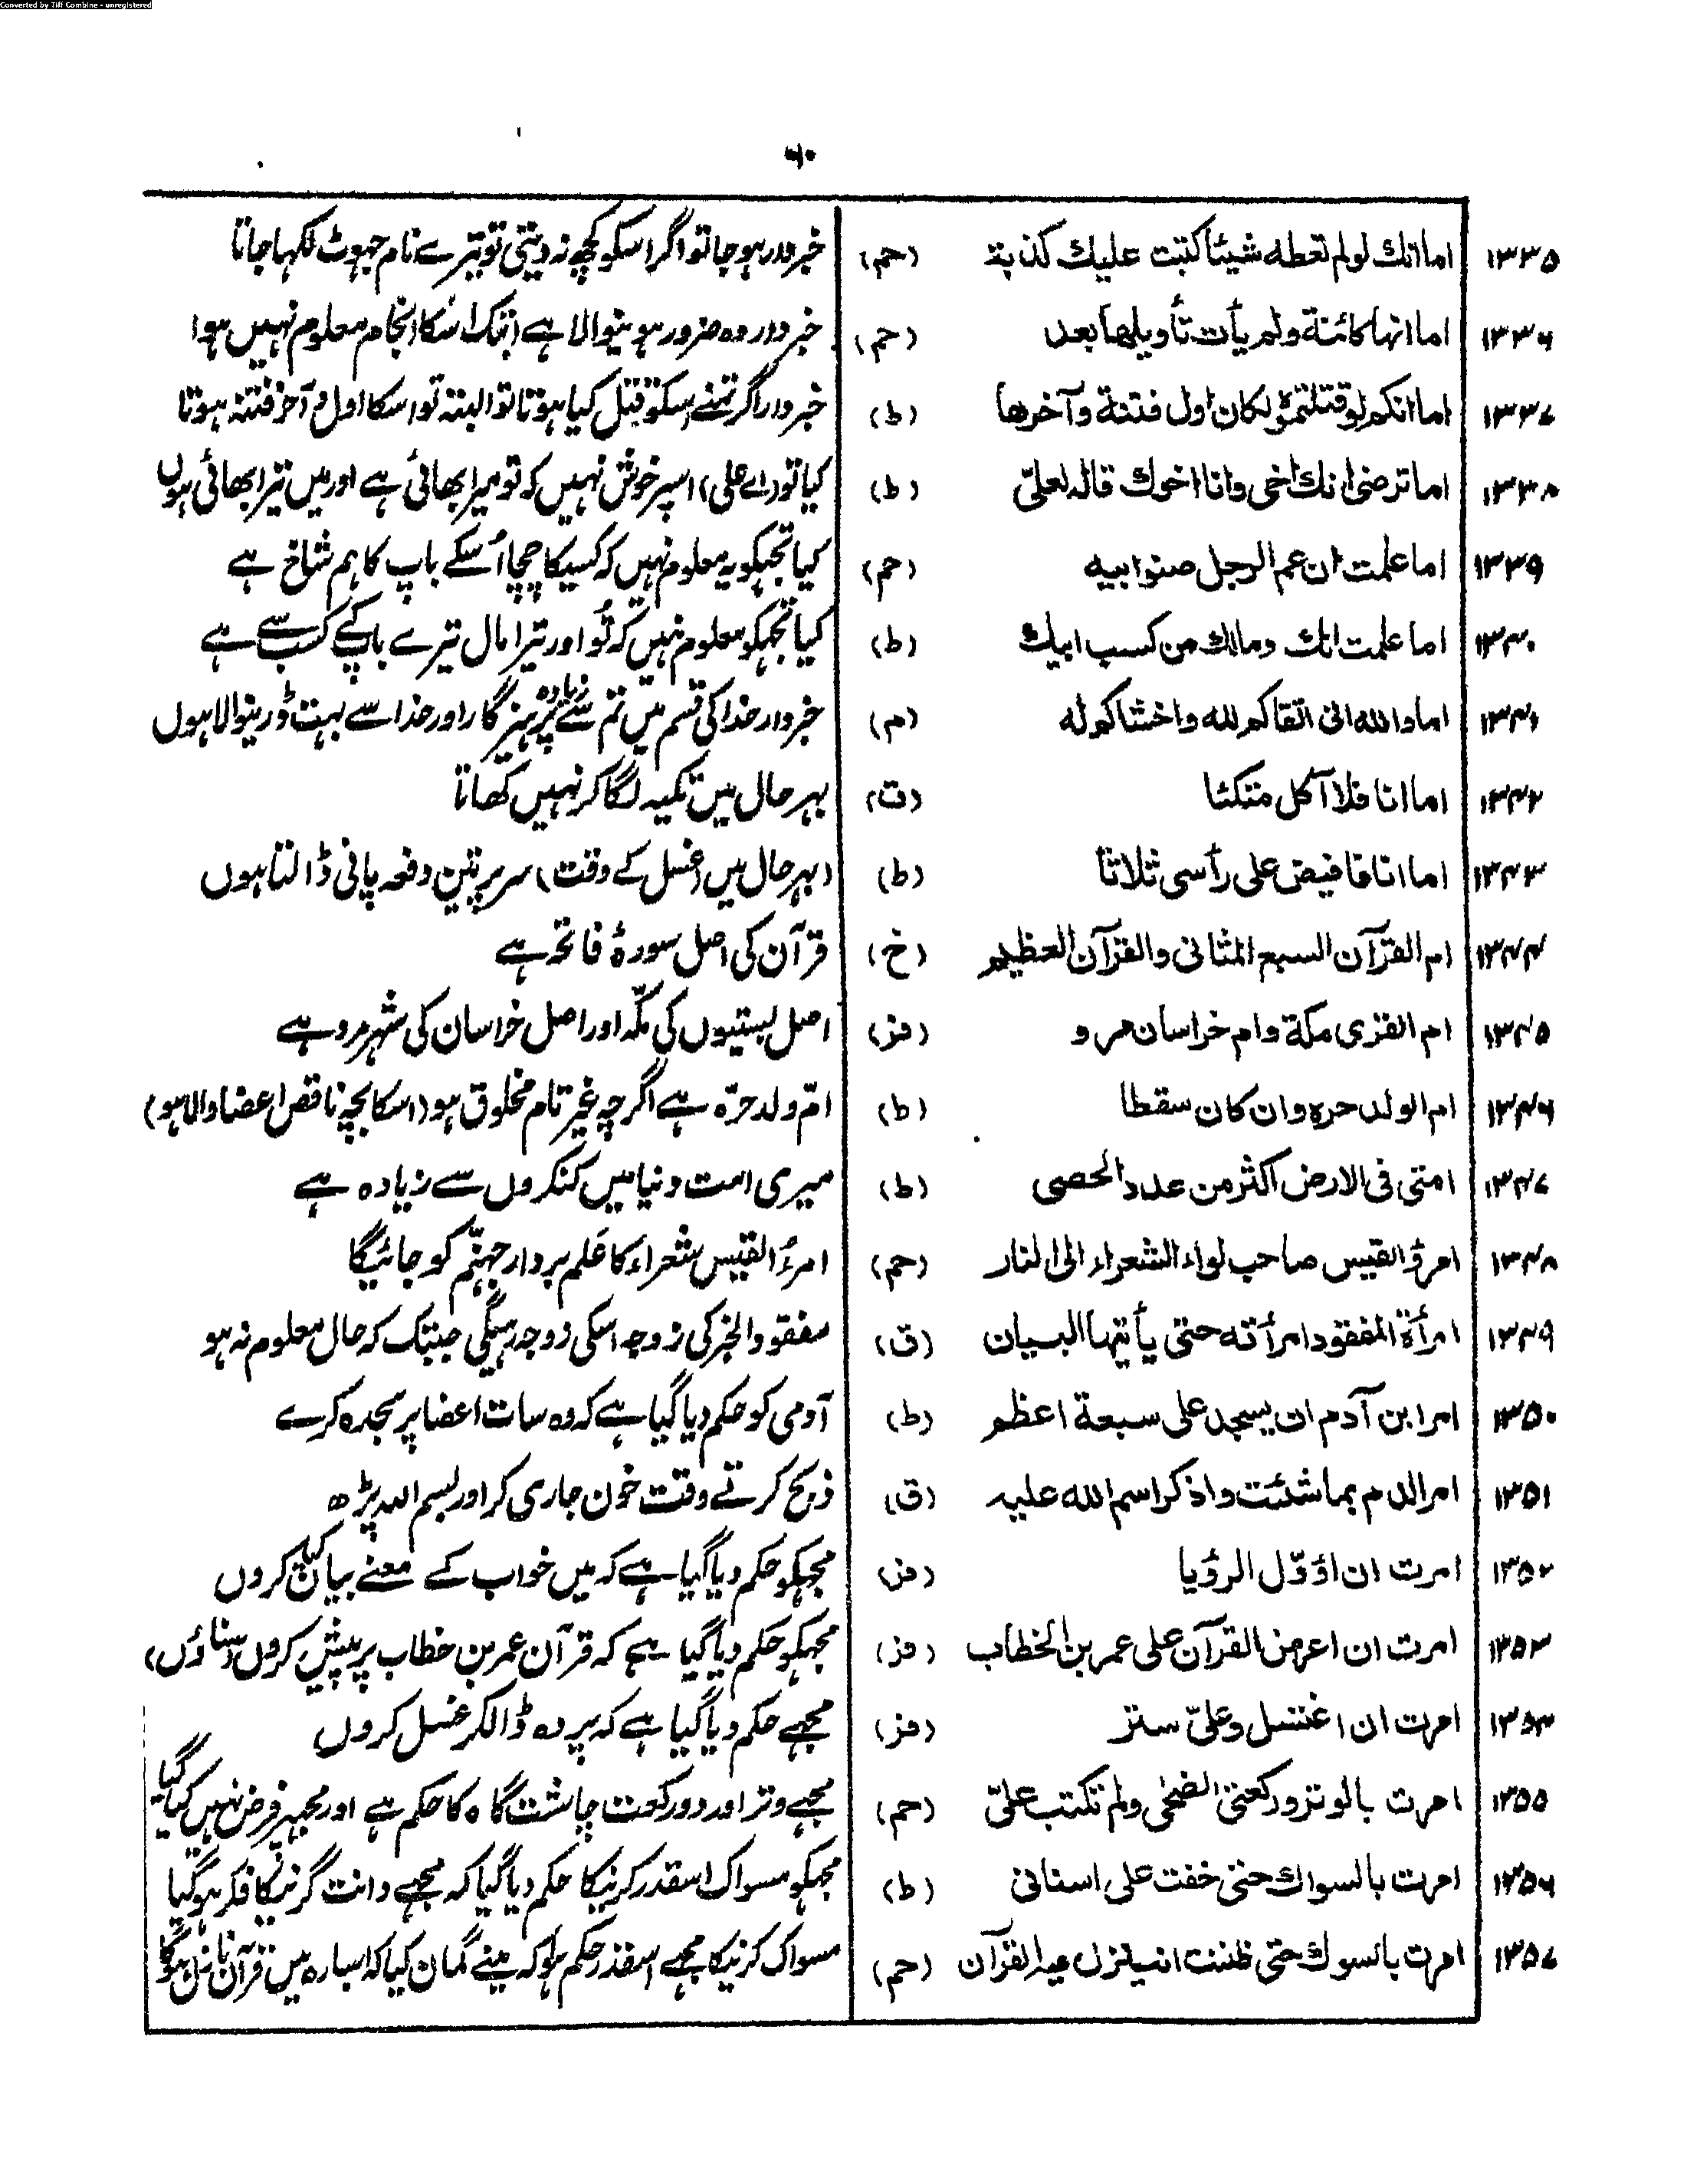 Converted by Tiff Combine - unregistered
۶۰
۱۳۳۵ اما انك لو لم تعطه شيئا كتبت عليك كذبة (حم) خبردار ہو جا تو اگر اسکو کچھ نہ دیتی تو تیرے نام جھوٹ لکھا جاتا
۱۳۳۶ اما انها كائنة ولم يأت تأويلها بعد (حم) خبردار وہ ضرور ہونیوالا ہے ابتک اسکا انجام معلوم نہیں ہوا
۱۳۳۷ اما انكم لو قتلتموه لكان اول فتنة وآخرها (ط) خبردار اگر تمنے اسکو قتل کیا ہوتا تو البتہ تو اسکا اول و آخر فتنہ ہوتا
۱۳۳۸ اما ترضى انك اخى وانا اخوك قاله لعلىّ (ط) کیا تو (اے علی) اسپر خوش نہیں کہ تو میرا بھائی ہے اور میں تیرا بھائی ہوں
۱۳۳۹ اما علمت ان عم الرجل صنو ابيه (حم) کیا تجھکو یہ معلوم نہیں کہ کسیکا چچا اُسکے باپ کا ہم شاخ ہے
۱۳۴۰ اما علمت انك ومالك من كسب ابيك (ط) کیا تجھکو معلوم نہیں کہ تُو اور تیرا مال تیرے باپکے کسب سے ہے
۱۳۴۱ اما والله انى اتقاكم لله واخشاكم له (م) خبردار خدا کی قسم میں تم سے زیادہ پرہیزگار اور خدا سے بہت ڈرنیوالا ہوں
۱۳۴۲ اما انا فلا آكل متكئا (ت) بہر حال میں تکیہ لگا کر نہیں کھاتا
۱۳۴۳ اما انا فافيض على رأسى ثلاثا (ط) (بہر حال میں (غسل کے وقت) سر پر تین دفعہ پانی ڈالتا ہوں
۱۳۴۴ ام القرآن السبع المثانى والقرآن العظيم (خ) قرآن کی اصل سورۂ فاتحہ ہے
۱۳۴۵ ام القرى مكة وام خراسان مرو (فز) اصل بستیوں کی مکّہ اور اصل خراسان کی شہر مرو ہے
۱۳۴۶ ام الولد حرة وان كان سقطا (ط) امّ ولد حرّہ ہے اگرچہ غیر تام مخلوق ہو (اسکا بچہ ناقص اعضا والا ہو)
۱۳۴۷ امتى فى الارض اكثر من عدد الحصى (ط) میری امت دنیا میں کنکروں سے زیادہ ہے
۱۳۴۸ امرؤ القيس صاحب لواء الشعراء الى النار (حم) امرءُ القیس شعراء کا عَلم بردار جہنّم کو جائیگا
۱۳۴۹ امرأة المفقود امرأته حتى يأتيها البيان (ق) مفقود الخبر کی زوجہ اسکی زوجہ رہیگی جبتک کہ حال معلوم نہ ہو
۱۳۵۰ امر ابن آدم ان يسجد على سبعة اعظم (ط) آدمی کو حکم دیا گیا ہے کہ وہ سات اعضا پر سجدہ کرے
۱۳۵۱ امر الدم بما شئت واذكر اسم الله عليه (ق) ذبح کرتے وقت خون جاری کر اور بسم اللہ پڑھ
۱۳۵۲ امرت ان اؤوّل الرؤيا (فز) مجھکو حکم دیا گیا ہے کہ میں خواب کے معنے بیان کروں
۱۳۵۳ امرت ان اعرض القرآن على عمر بن الخطاب (فز) مجھکو حکم دیا گیا ہے کہ قرآن عمر بن خطاب پر پیش کروں (سناؤں)
۱۳۵۴ امرت ان اغتسل وعلىّ ستر (فز) مجھے حکم دیا گیا ہے کہ پردہ ڈالکر غسل کروں
۱۳۵۵ امرت بالوتر وركعتى الضحى ولم تكتب علىّ (حم) مجھے وتر اور دو رکعت چاشت گاہ کا حکم ہے اور مجھپر فرض نہیں کیا گیا
۱۳۵۶ امرت بالسواك حتى خفت على اسنانى (ط) مجھکو مسواک اسقدر کرنیکا حکم دیا گیا کہ مجھے دانت گرنیکا فکر ہو گیا
۱۳۵۷ امرت بالسواك حتى ظننت انه سينزل فيه القرآن (حم) مسواک کرنیکا مجھے اسقدر حکم ہوا کہ مینے گمان کیا کہ اسبارہ میں قرآن نازل ہوگا